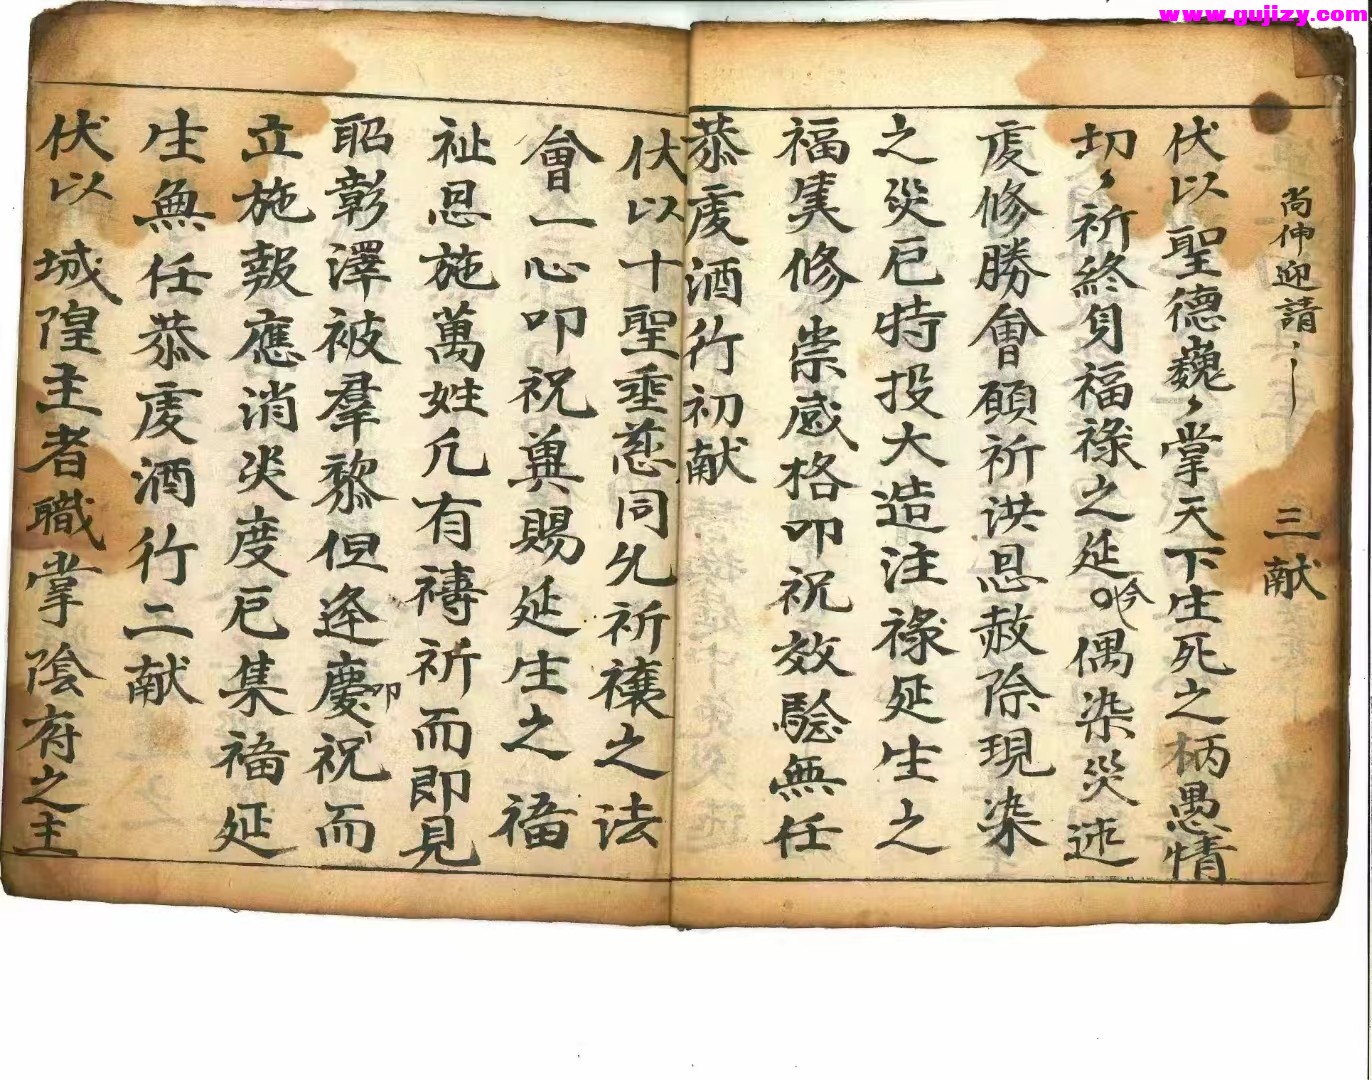 www.gujizy.com
尚伸迎請
三献
伏以聖德巍々掌天下生死之柄愚情
切々祈終身福祿之延今偶染災迍
虔修勝會願祈洪恩赦除現染
之災厄特投大造注祿延生之
福集修崇感格叩祝效驗無任
恭虔酒行初献
伏以十聖垂慈同允祈禳之法
會一心叩祝兾賜延生之福
祉恩施萬姓凡有禱祈而即見
昭彰澤被羣黎但逢慶叩祝而
立施報應消災度厄集福延
生無任恭虔酒行二献
伏以城隍主者職掌陰府之主